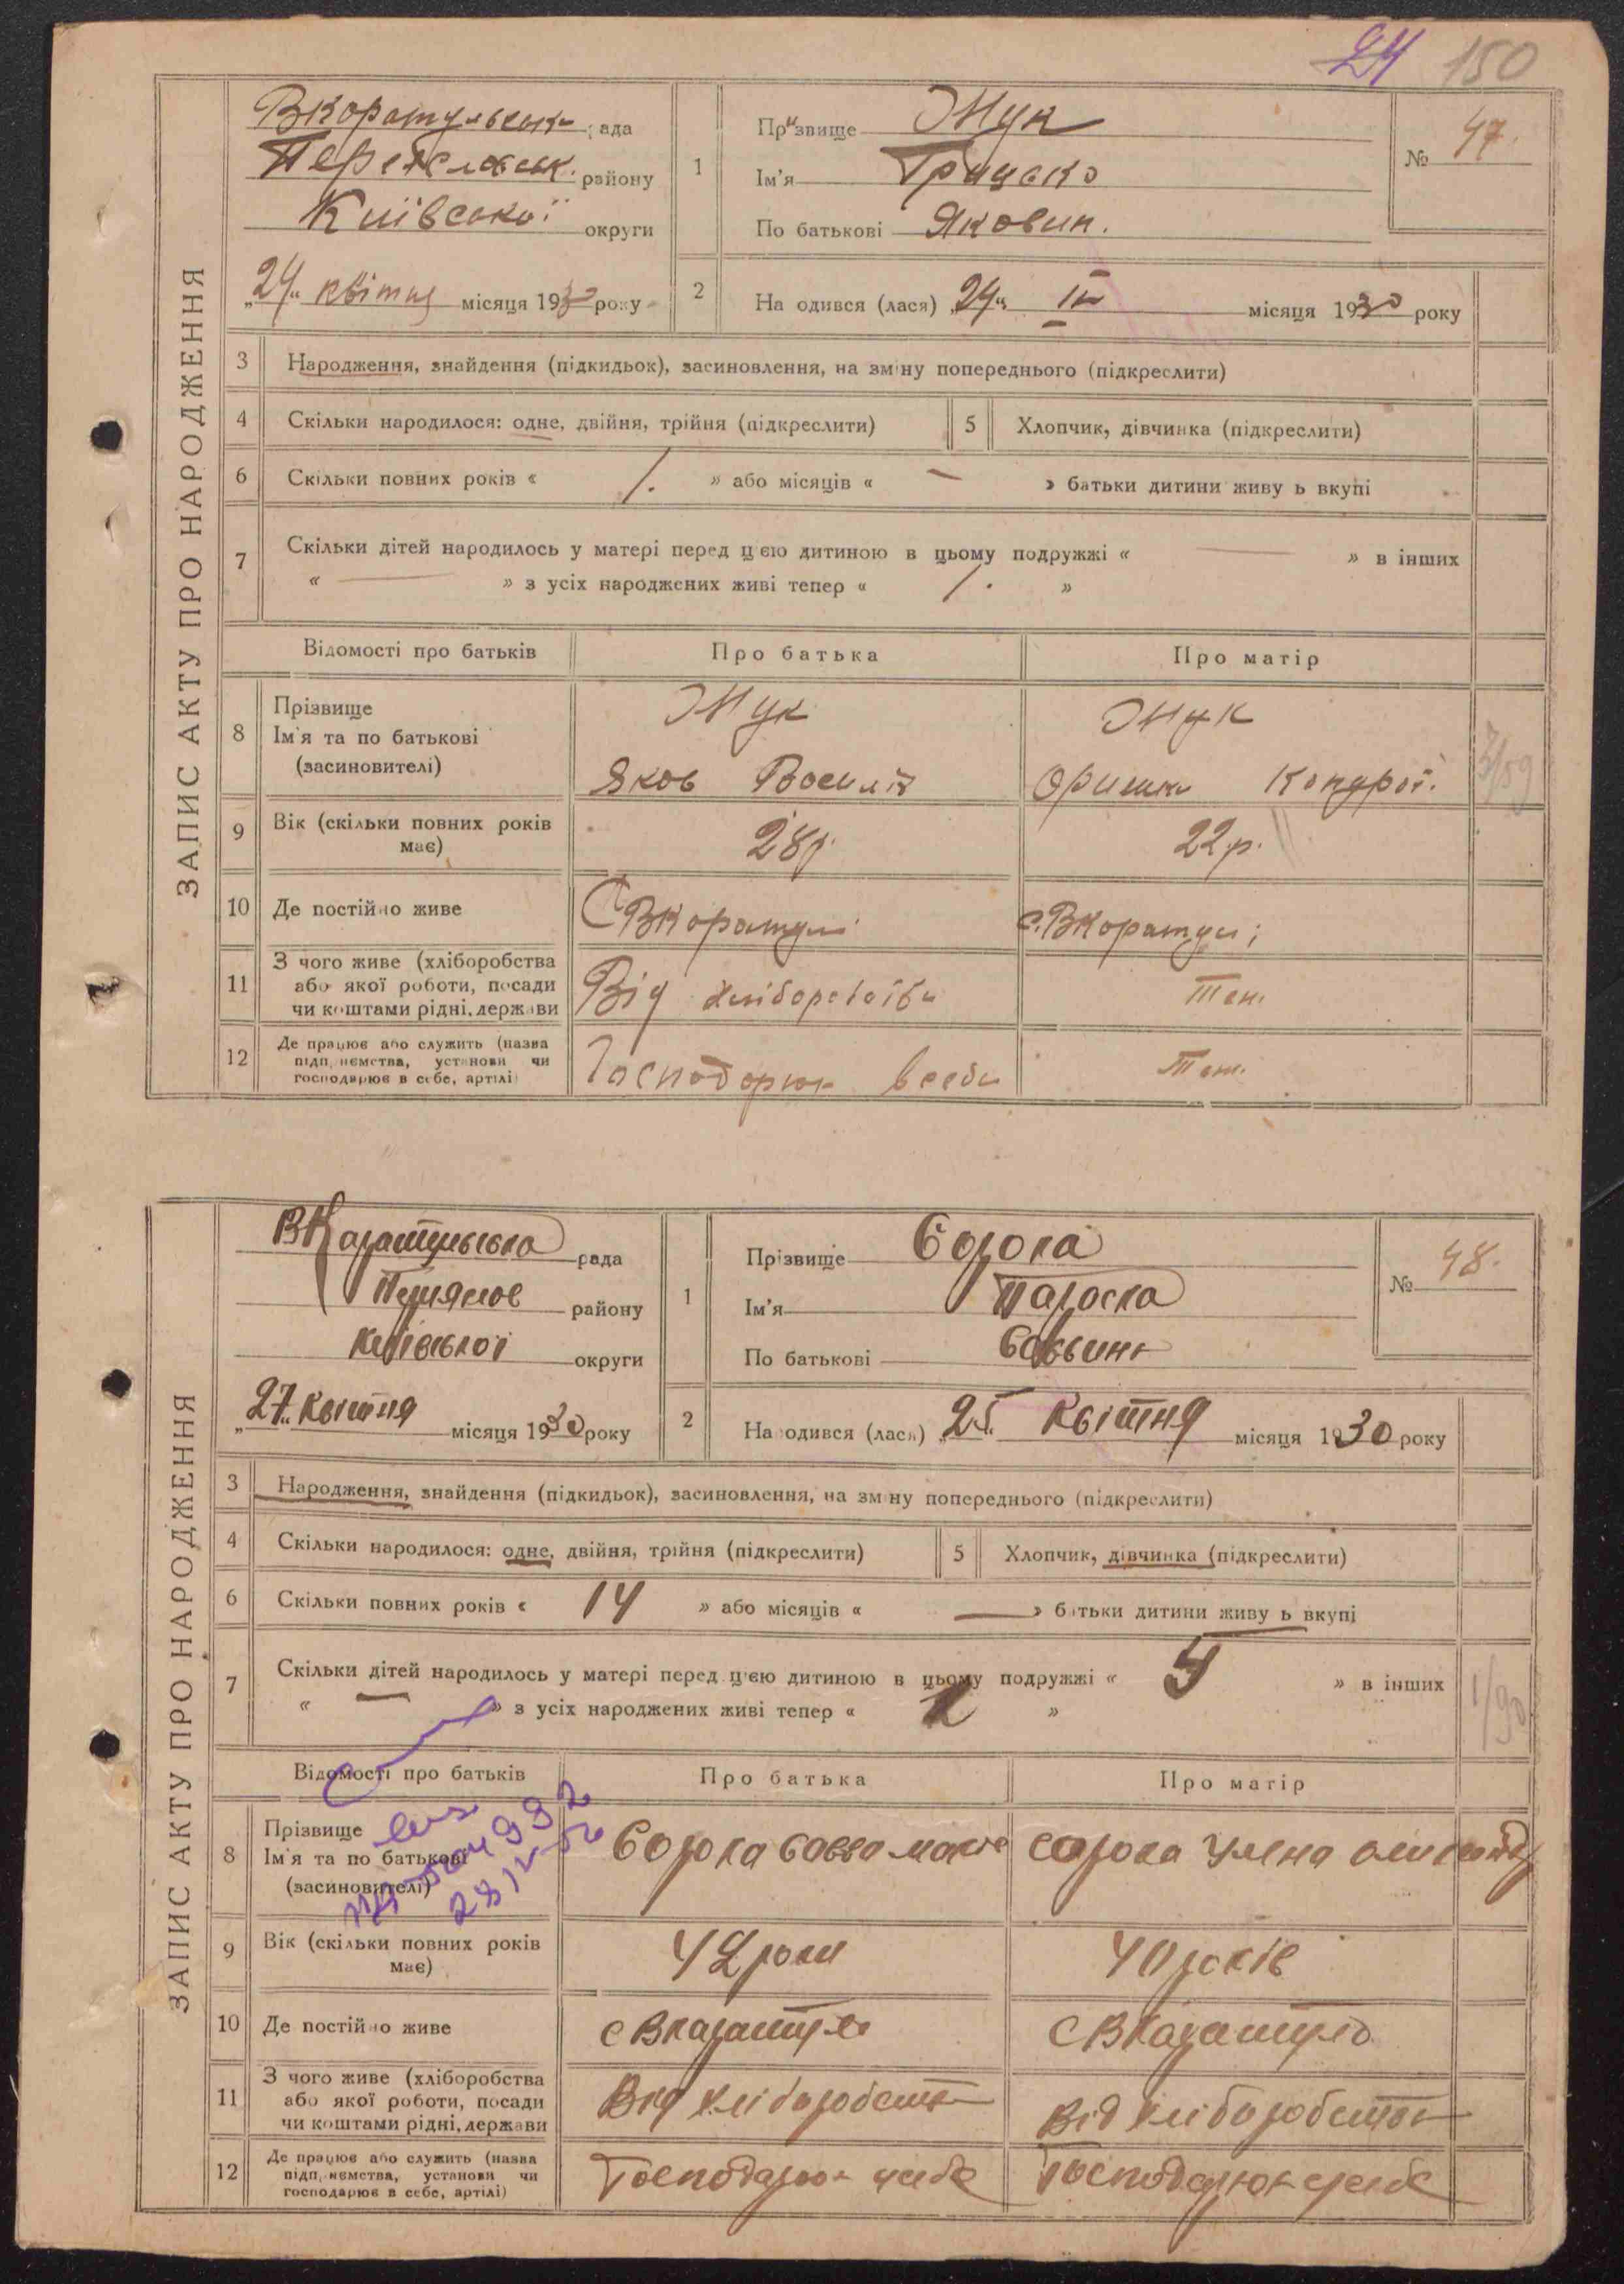 24 150
ЗАПИС АКТУ ПРО НАРОДЖЕННЯ
Вкоратульська рада
Переяславськ. району
Київської округи
„24“ квітня місяця 1930 року
1
Прізвище Жук
Ім'я Грицько
По батькові Яковин.
№ 47.
2
На одився (лася) „24“ IV місяця 1930 року
3 Народження, знайдення (підкидьок), засиновлення, на зміну попереднього (підкреслити)
4 Скільки народилося: одне, двійня, трійня (підкреслити) 5 Хлопчик, дівчинка (підкреслити)
6 Скільки повних років « 1. » або місяців « — » батьки дитини живу ь вкупі
7 Скільки дітей народилось у матері перед цією дитиною в цьому подружжі « — » в інших
« — » з усіх народжених живі тепер « 1. »
Відомості про батьків Про батька Про матір
8 Прізвище
Ім'я та по батькові
(засиновителі)
Жук
Яков Василів
Жук
Оришка Кондрат.
9 Вік (скільки повних років
має)
28р. 22.р.
10 Де постійно живе С Вкоратулі с. Вкоратулі
11 З чого живе (хліборобства
або якої роботи, посади
чи коштами рідні, держави
Від хліборобства Теж.
12 Де працює або служить (назва
підп. иємства, установи чи
господарює в себе, артілі)
Господорює в себе Теж.
ЗАПИС АКТУ ПРО НАРОДЖЕННЯ
ВКаратульська рада
району
Київської округи
„27“ квітня місяця 1930 року
1
Прізвище Сорока
Ім'я Параска
По батькові
№ 48.
2
На одився (лася) „25“ квітня місяця 1930 року
3 Народження, знайдення (підкидьок), засиновлення, на зміну попереднього (підкреслити)
4 Скільки народилося: одне, двійня, трійня (підкреслити) 5 Хлопчик, дівчинка (підкреслити)
6 Скільки повних років « 14 » або місяців « — » батьки дитини живу ь вкупі
7 Скільки дітей народилось у матері перед цією дитиною в цьому подружжі « 5 » в інших 1/90
« — » з усіх народжених живі тепер « »
Відомості про батьків Про батька Про матір
8 Прізвище
Ім'я та по батькові
(засиновителі)
Сорока Савва Сорока Уляна
9 Вік (скільки повних років
має)
42 роки 40 років
10 Де постійно живе с Вкаратулі с Вкаратулі
11 З чого живе (хліборобства
або якої роботи, посади
чи коштами рідні, держави
Від хліборобства Від хліборобства
12 Де працює або служить (назва
підп. иємства, установи чи
господарює в себе, артілі)
Господарює у себе Господарює у себе